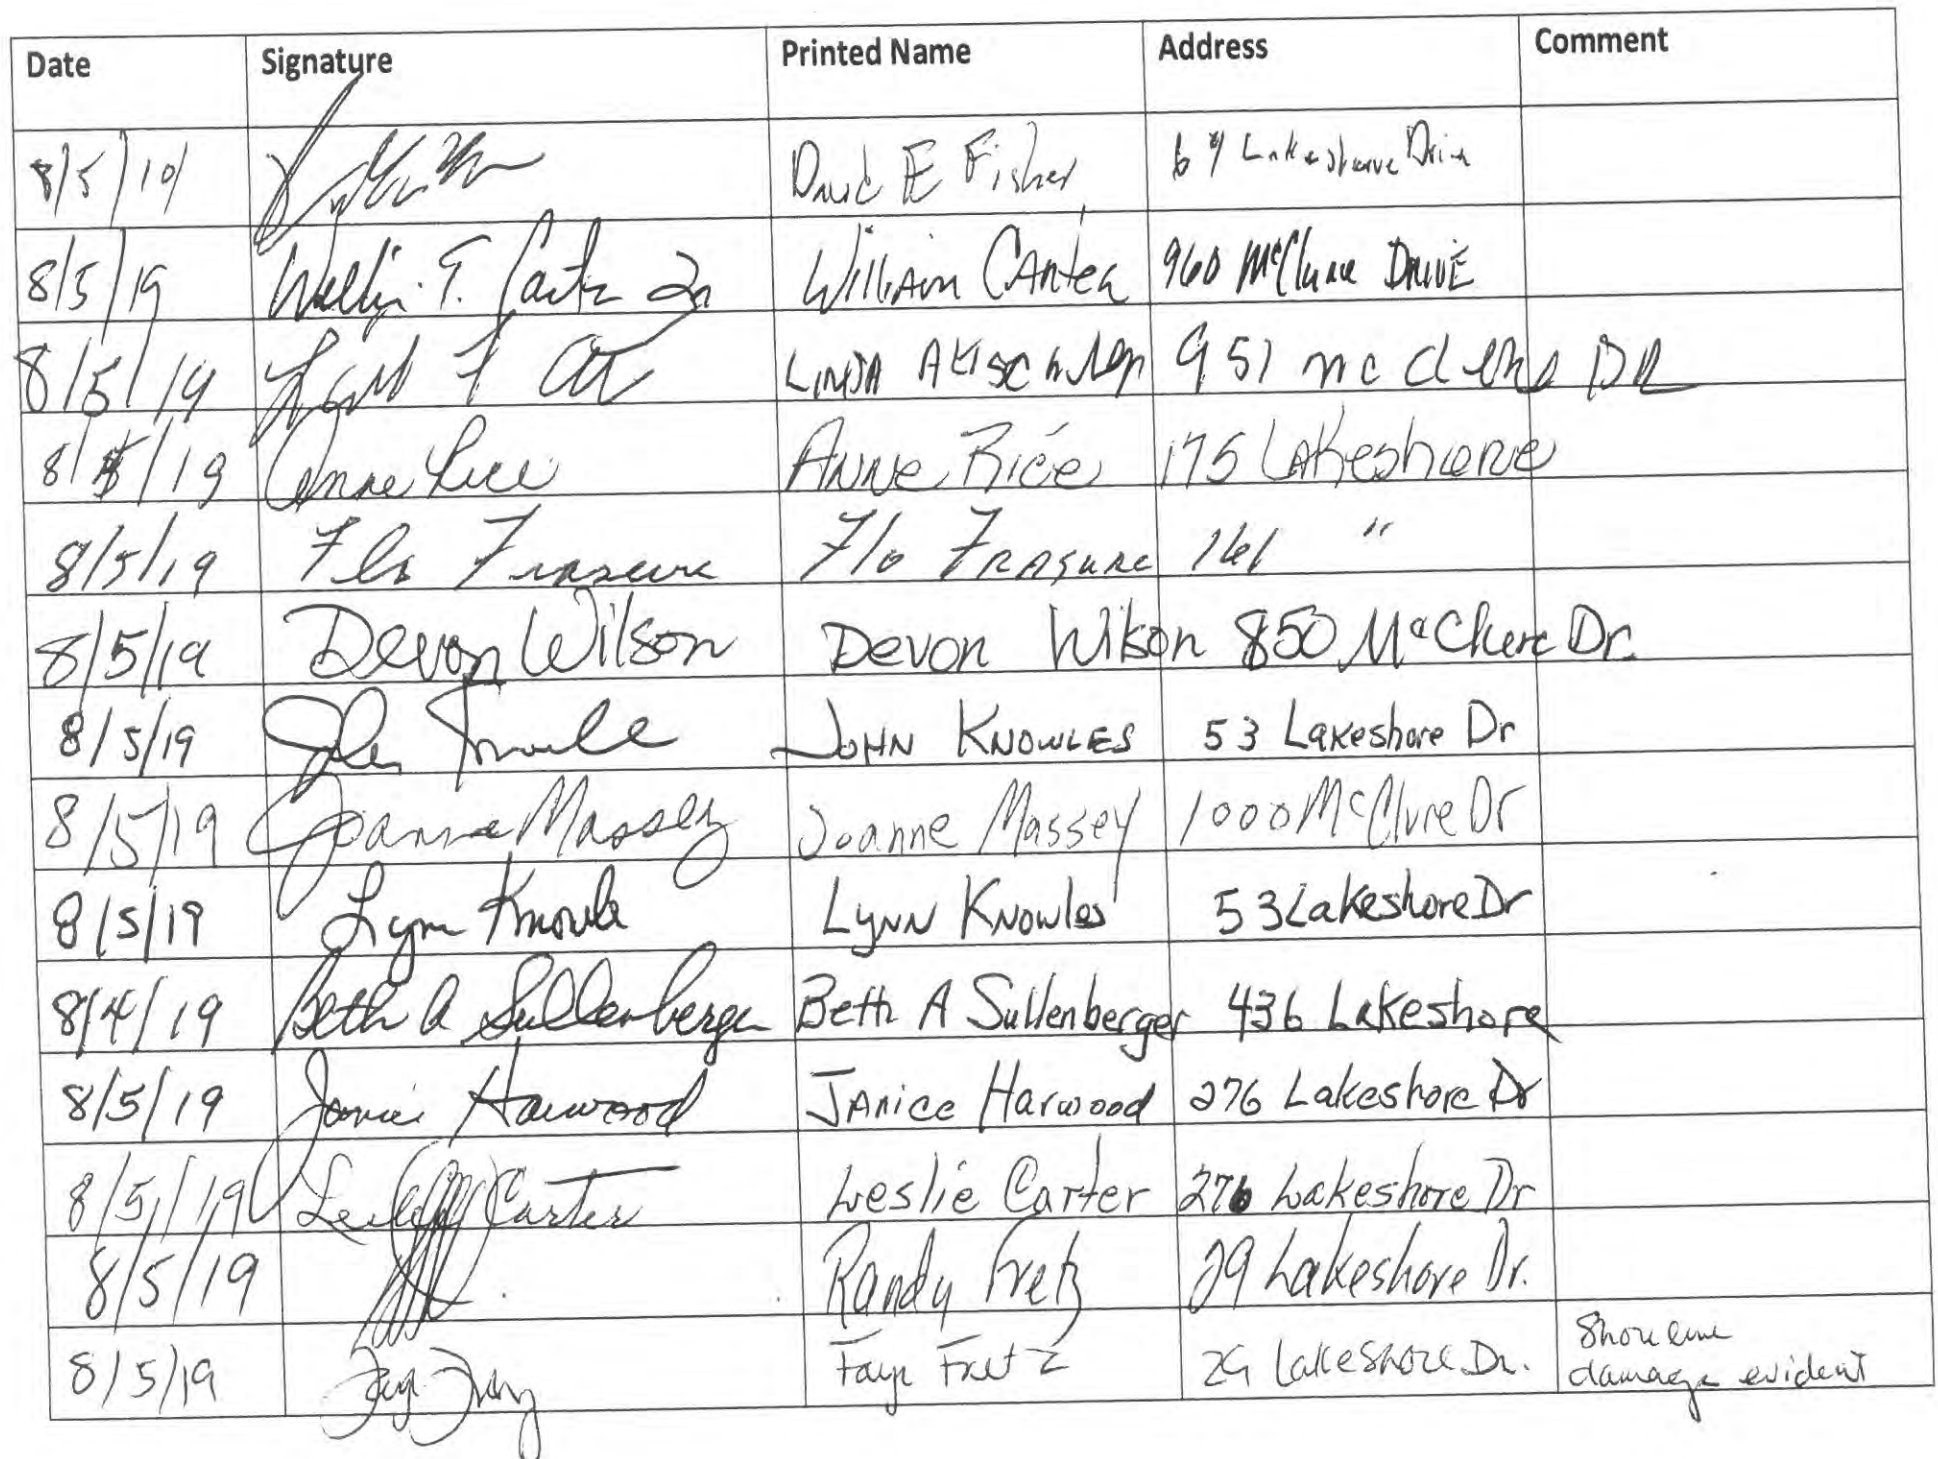 Date Signature Printed Name Address Comment
8/5/10 David E Fisher 64 Lakeshore Drive
8/5/19 William T. Carter Jr William Carter 960 McClure Drive
8/5/19 Linda 951 McClure DR
8/5/19 Anne Rice Anne Rice 175 Lakeshore
8/5/19 Flo Frasure Flo Frasure 161 "
8/5/19 Devon Wilson Devon Wilson 850 McClure Dr.
8/5/19 John Knowles John Knowles 53 Lakeshore Dr
8/5/19 Joanne Massey Joanne Massey 1000 McClure Dr
8/5/19 Lynn Knowles Lynn Knowles 53 Lakeshore Dr
8/4/19 Beth A Sullenberger Beth A Sullenberger 436 Lakeshore
8/5/19 Janice Harwood Janice Harwood 276 Lakeshore Dr
8/5/19 Leslie Carter Leslie Carter 276 Lakeshore Dr
8/5/19 Randy Fretz 29 Lakeshore Dr.
8/5/19 Faye Fretz 29 Lakeshore Dr. Shoreline
damage evident